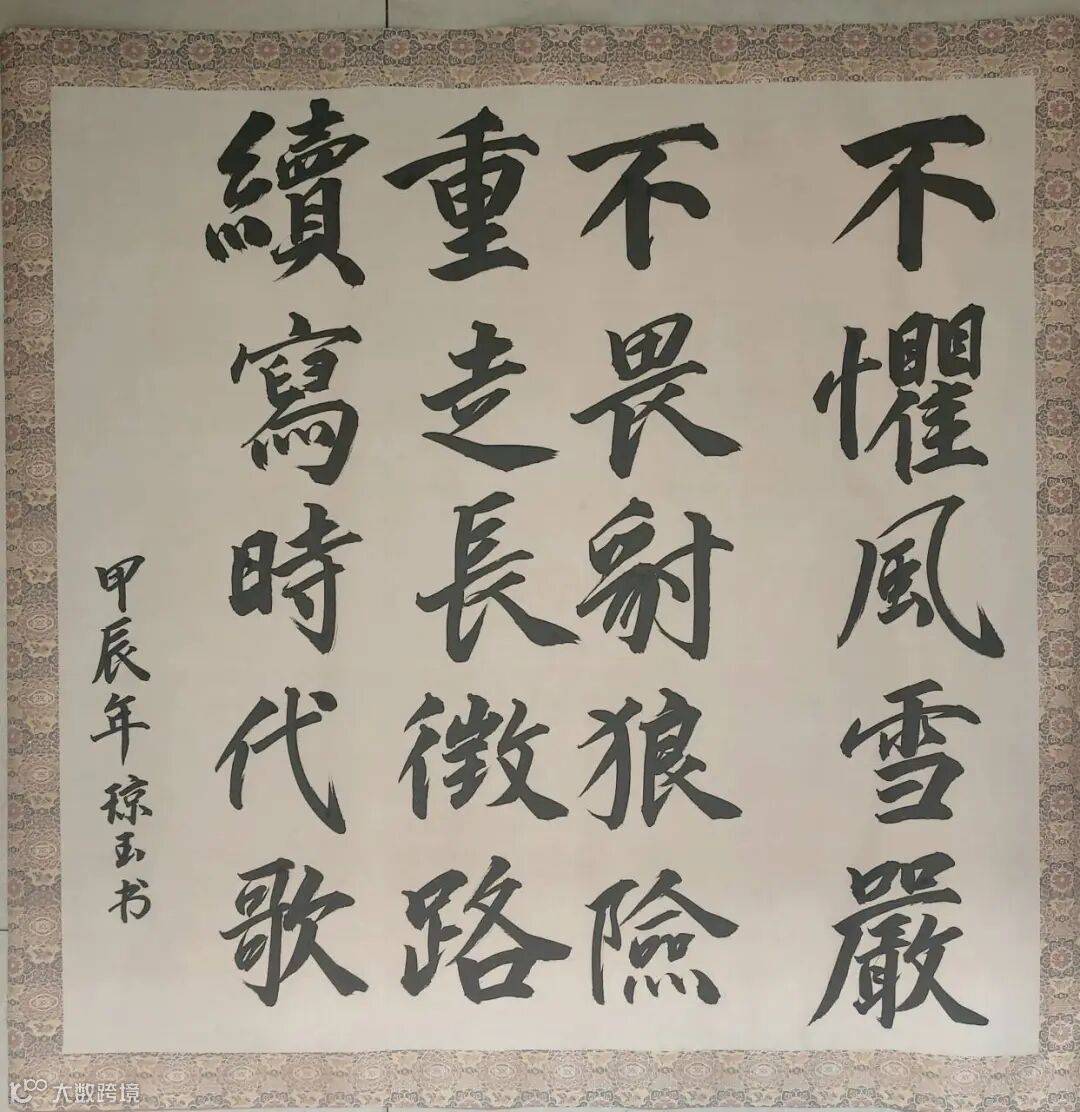 不懼風雪嚴
不畏豺狼險
重走長徵路
續寫時代歌
甲辰年琼玉书
大数跨境